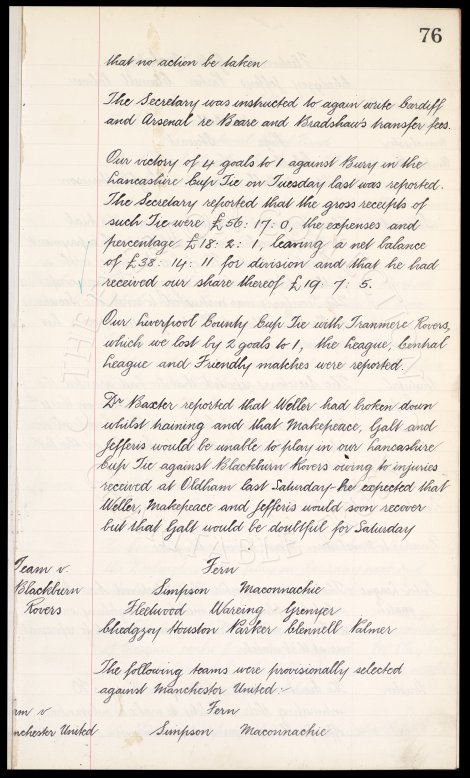 76
that no action be taken
The Secretary was instructed to again write Cardiff
and Arsenal re Beare and Bradshaw's transfer fees.
Our victory of 4 goals to 1 against Bury in the
Lancashire Cup Tie on Tuesday last was reported.
The Secretary reported that the gross receipts of
such Tie were £56: 17: 0, the expenses and
percentage £18: 2: 1, leaving a net balance
of £38: 14: 11 for division and that he had
received our share thereof £19: 7: 5.
Our Liverpool County Cup Tie with Tranmere Rovers,
which we lost by 2 goals to 1, the League, Central
League and Friendly matches were reported.
Dr Baxter reported that Weller had broken down
whilst training and that Makepeace, Galt and
Jefferis would be unable to play in our Lancashire
Cup Tie against Blackburn Rovers owing to injuries
received at Oldham last Saturday - he expected that
Weller, Makepeace and Jefferis would soon recover
but that Galt would be doubtful for Saturday
Team v. Fern
Blackburn Simpson Maconnachie
Rovers Fleetwood Wareing Grenyer
Chedgzoy Houston Parker Clennell Palmer
The following teams were provisionally selected
against Manchester United:-
am v Fern
nchester United Simpson Maconnachie